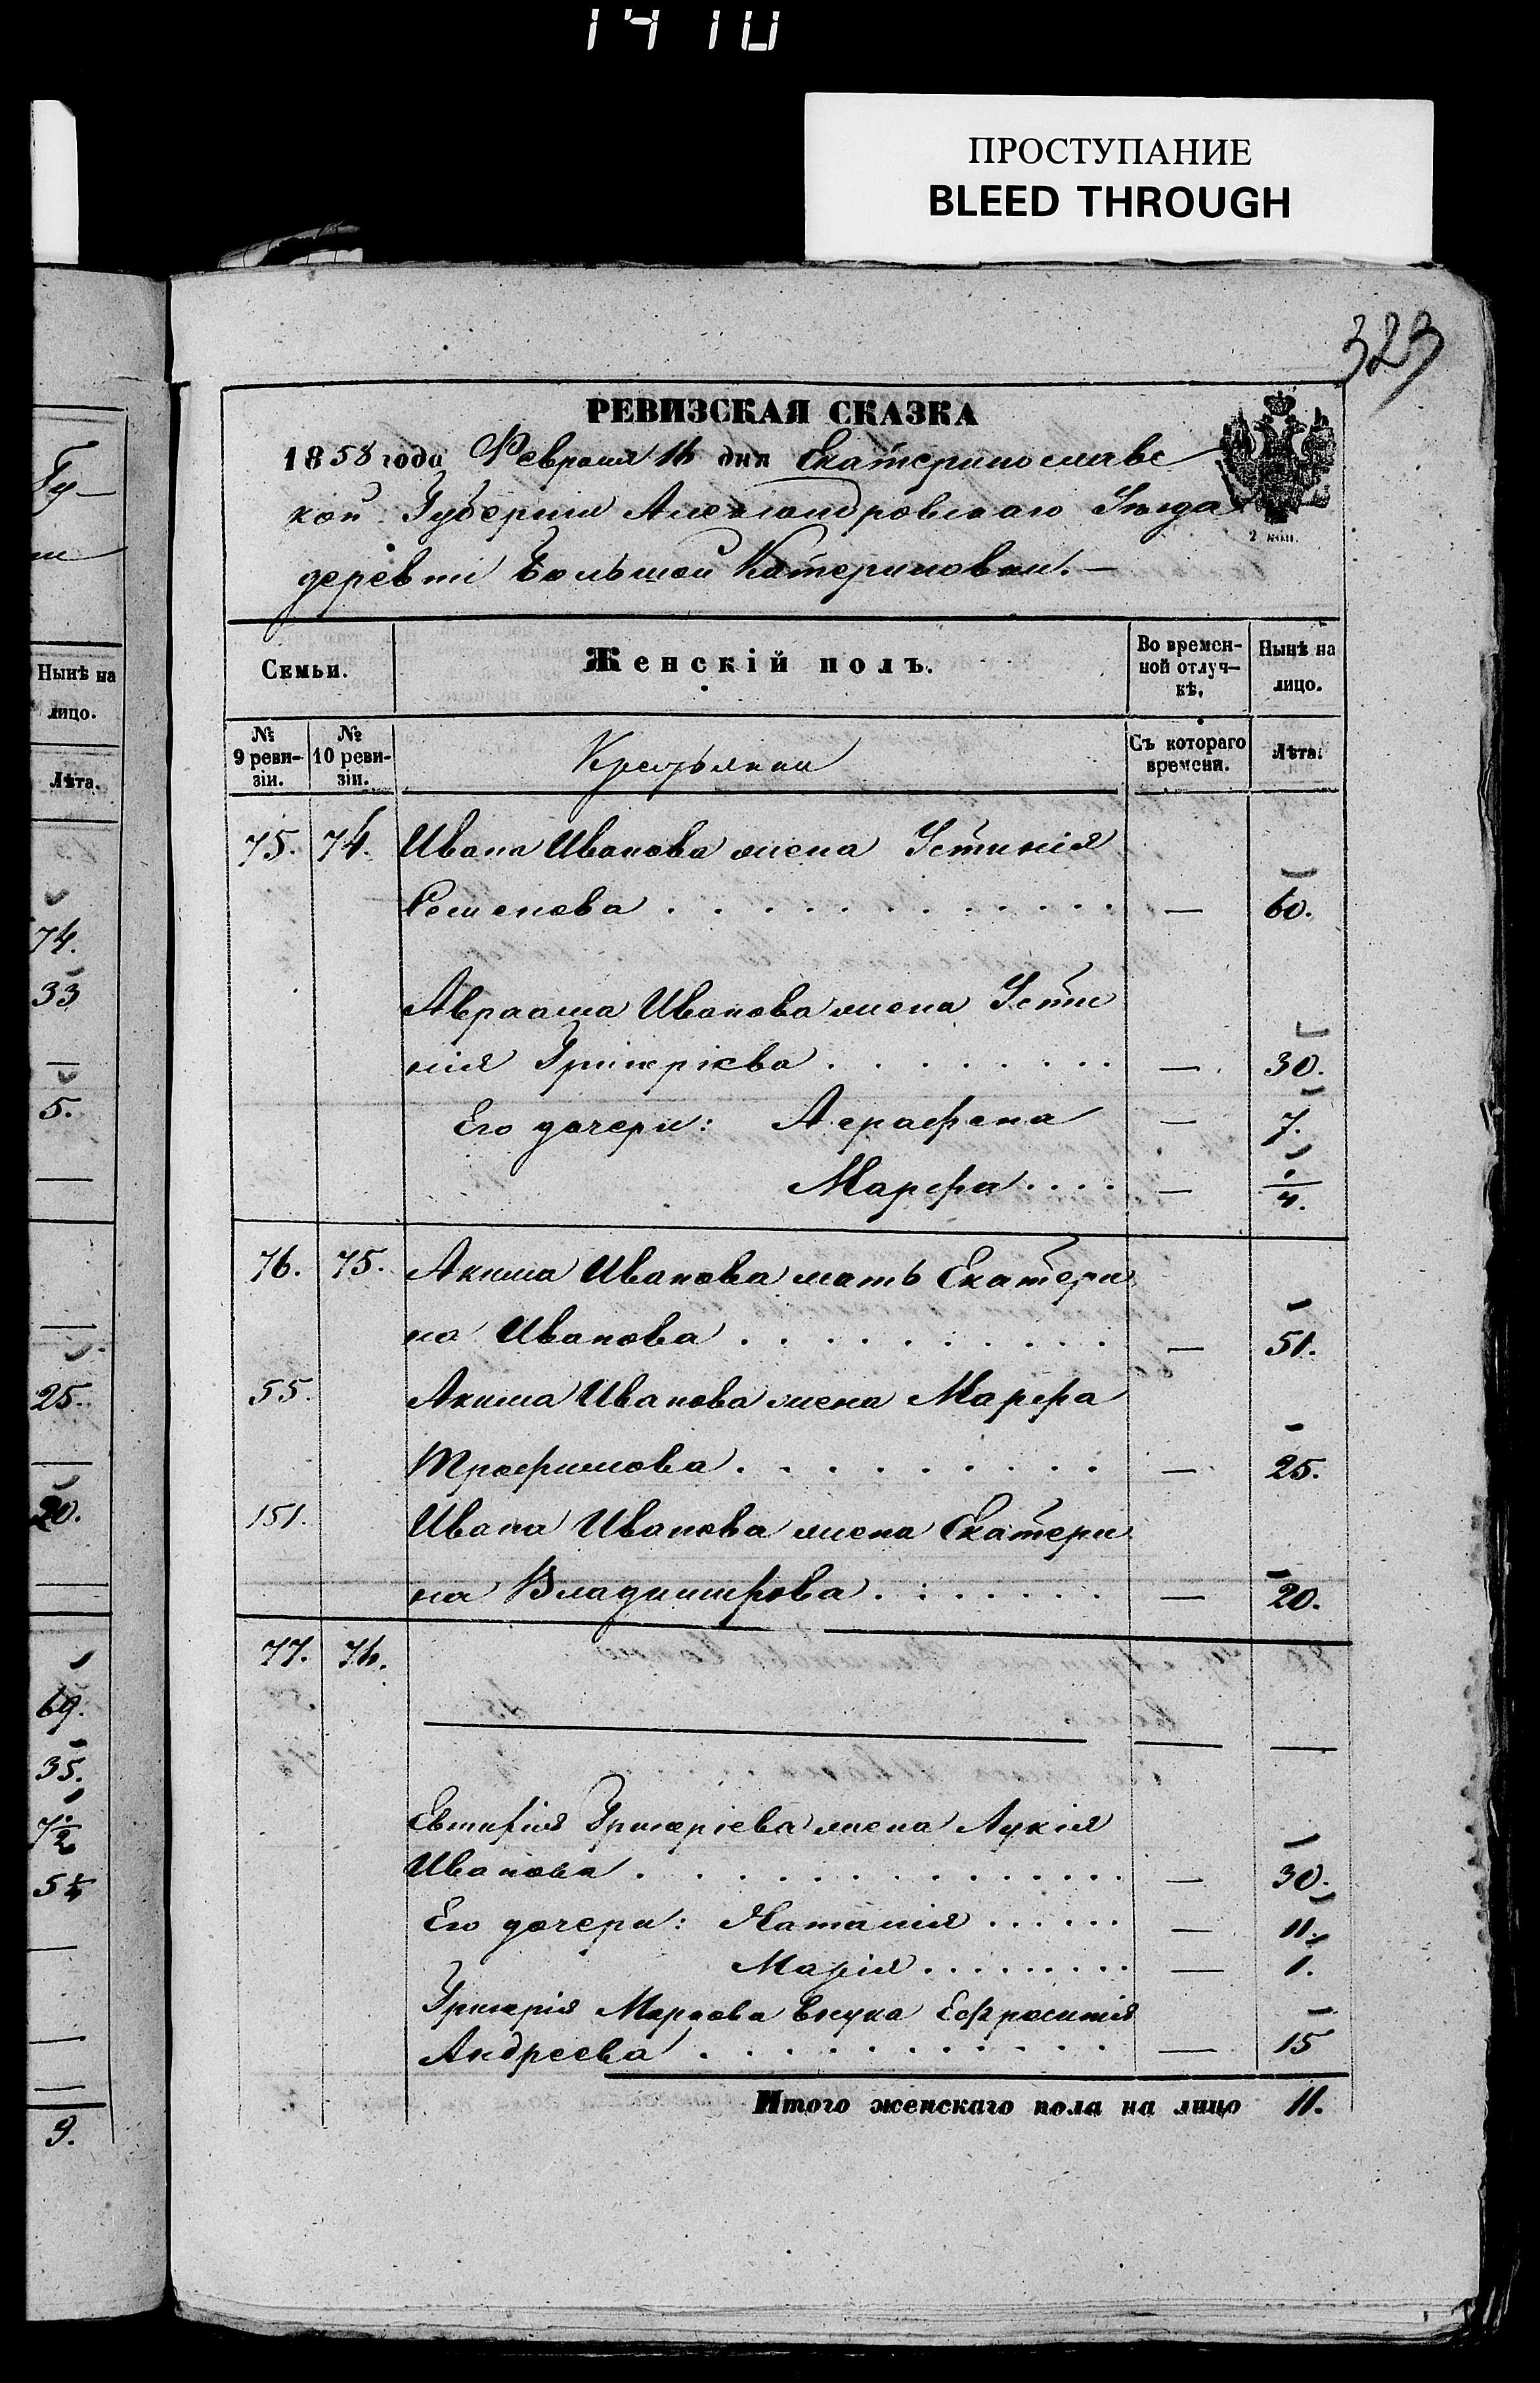 1410
ПРОСТУПАНИЕ
BLEED THROUGH
323
РЕВИЗСКАЯ СКАЗКА
1858 года Февраля 16 дня Екатеринославс
кой Губерніи Александровскаго Уѣзда
2 коп.
деревни Большой Катериновки.—
Семьи. Женскій полъ. Во времен-
ной отлуч-
кѣ, Нынѣ на
лицо.
№
9 реви-
зіи. №
10 реви-
зіи. Крестьянки Съ котораго
времени. Лѣта.
75. 74. Ивана Иванова жена Устинія
Семенова . . . . . . . . . . . — 60.
Авраама Иванова жена Усти
нія Григоріева . . . . . . . . — 30.
Его дочери: Аграфена — 7.
Марфа . . . . — 1/4.
76. 75. Акима Иванова мать Екатери
на Иванова . . . . . . . . . — 51.
55. Акима Иванова жена Марфа
Трофимова . . . . . . . . . — 25.
151. Ивана Иванова жена Екатери
на Владимирова . . . . . . . — 20.
77. 76.
— — —
Евтифія Григоріева жена Лукія
Иванова . . . . . . . . . . . . — 30.
Его дочери: Наталія . . . . . . — 11.
Марія . . . . . . . . — 1.
Григорія Маркова внука Ефросинія
Андреева . . . . . . . . . . . — 15
Итого женскаго пола на лицо 11.
Гу—
Нынѣ на
лицо.
Лѣта.
74.
33
—
5.
—
—
25.
—
20.
—
69.
35.
7 1/2
5 1/4
—
—
—
9.